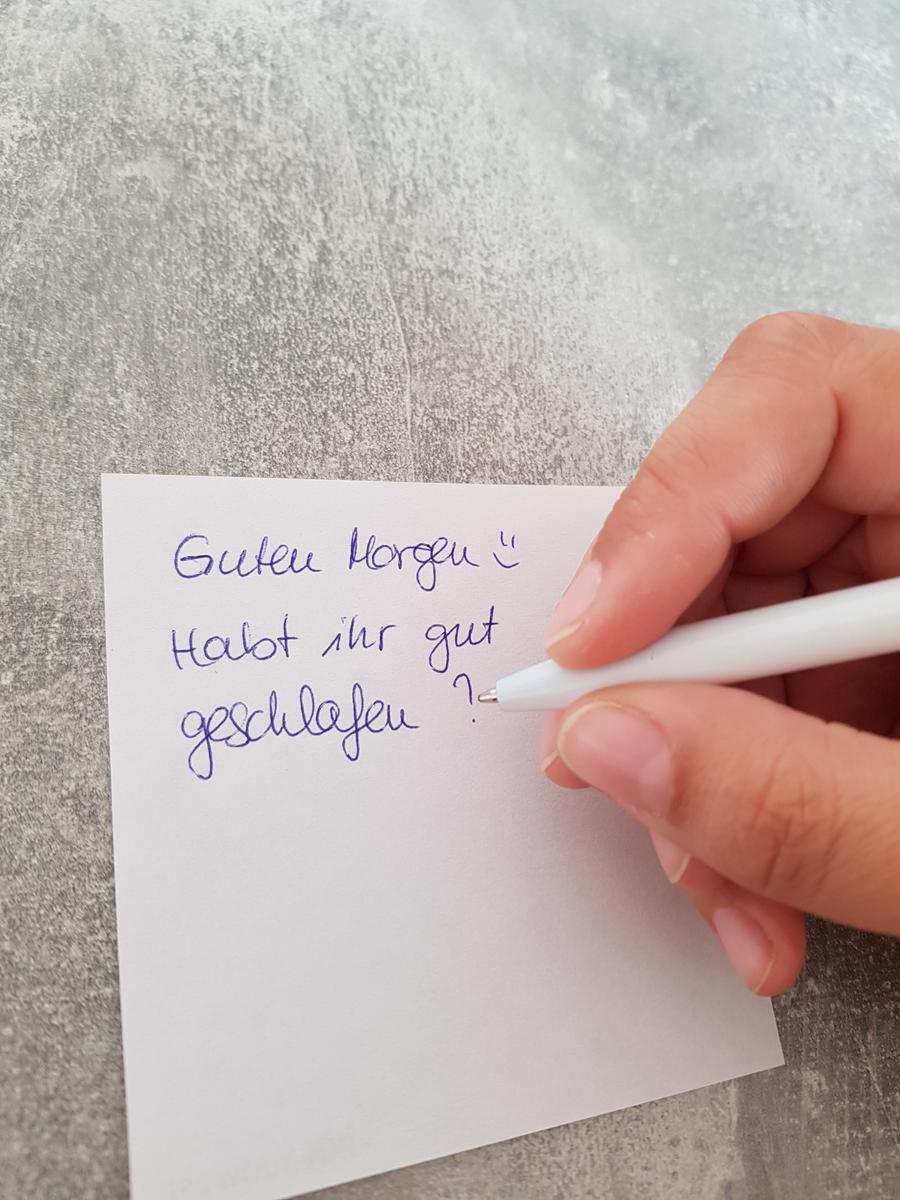 Guten Morgen :)
Habt ihr gut
geschlafen ?